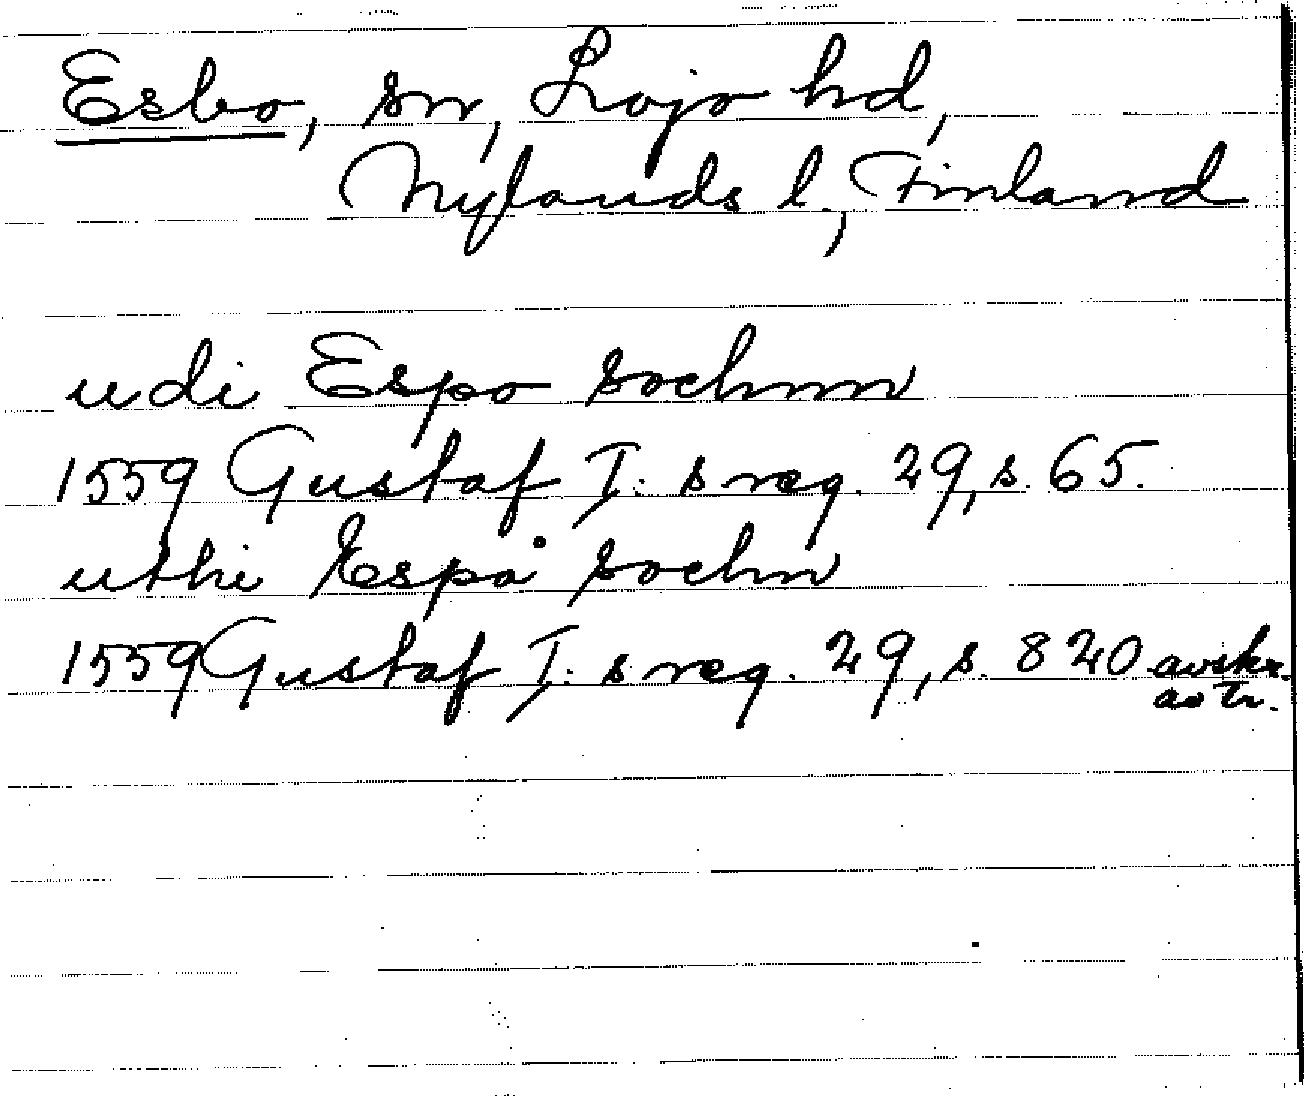 Esbo, sn, Lojo hd,
Nylands l., Finland
udi Espo sochnn
1559 Gustaf I:s reg. 29, s. 65.
uthi Espå sochn
1559 Gustaf I:s reg. 29, s. 820 avskr.
av tr.